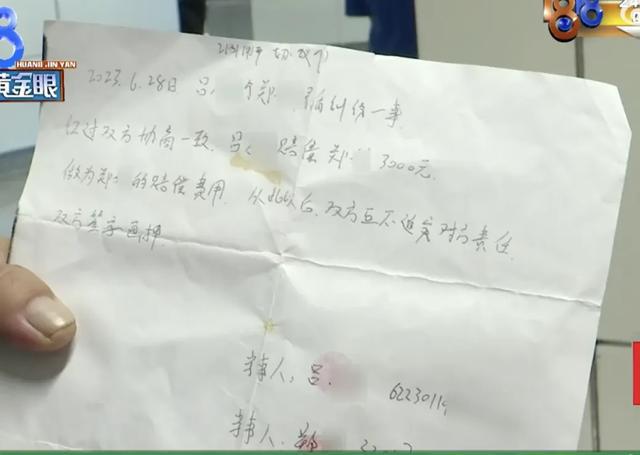 黄金眼
HUANG JIN YAN
88
调解协议
2023.6.28日 吕 与郑 纠纷一事
经过双方协商一致. 吕 赔偿 郑 3000元.
做为郑 的赔偿费用. 从此以后. 双方互不追究对方责任.
双方签字画押.
吕.
62230119
郑